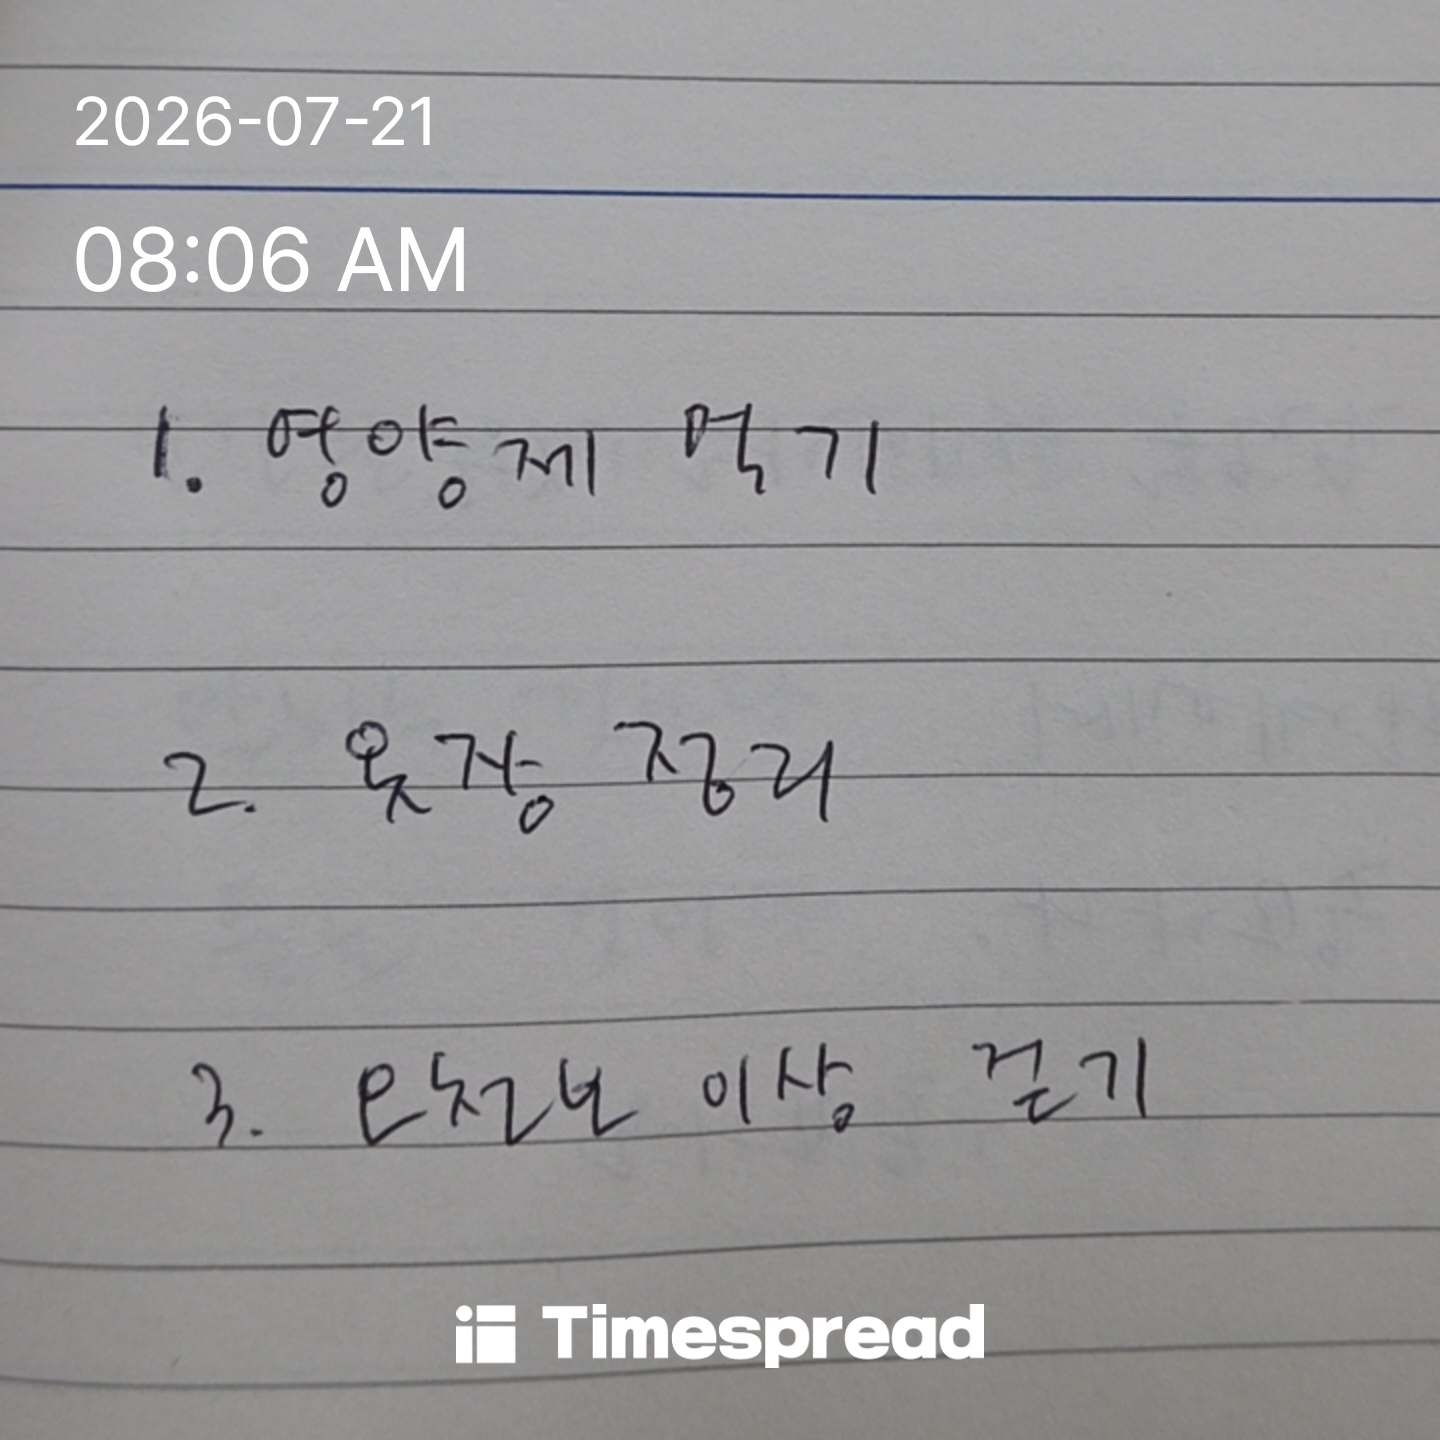 2026-07-21
08:06 AM
1. 영양제 먹기
2. 옷장 정리
3. 오천보 이상 걷기
Timespread